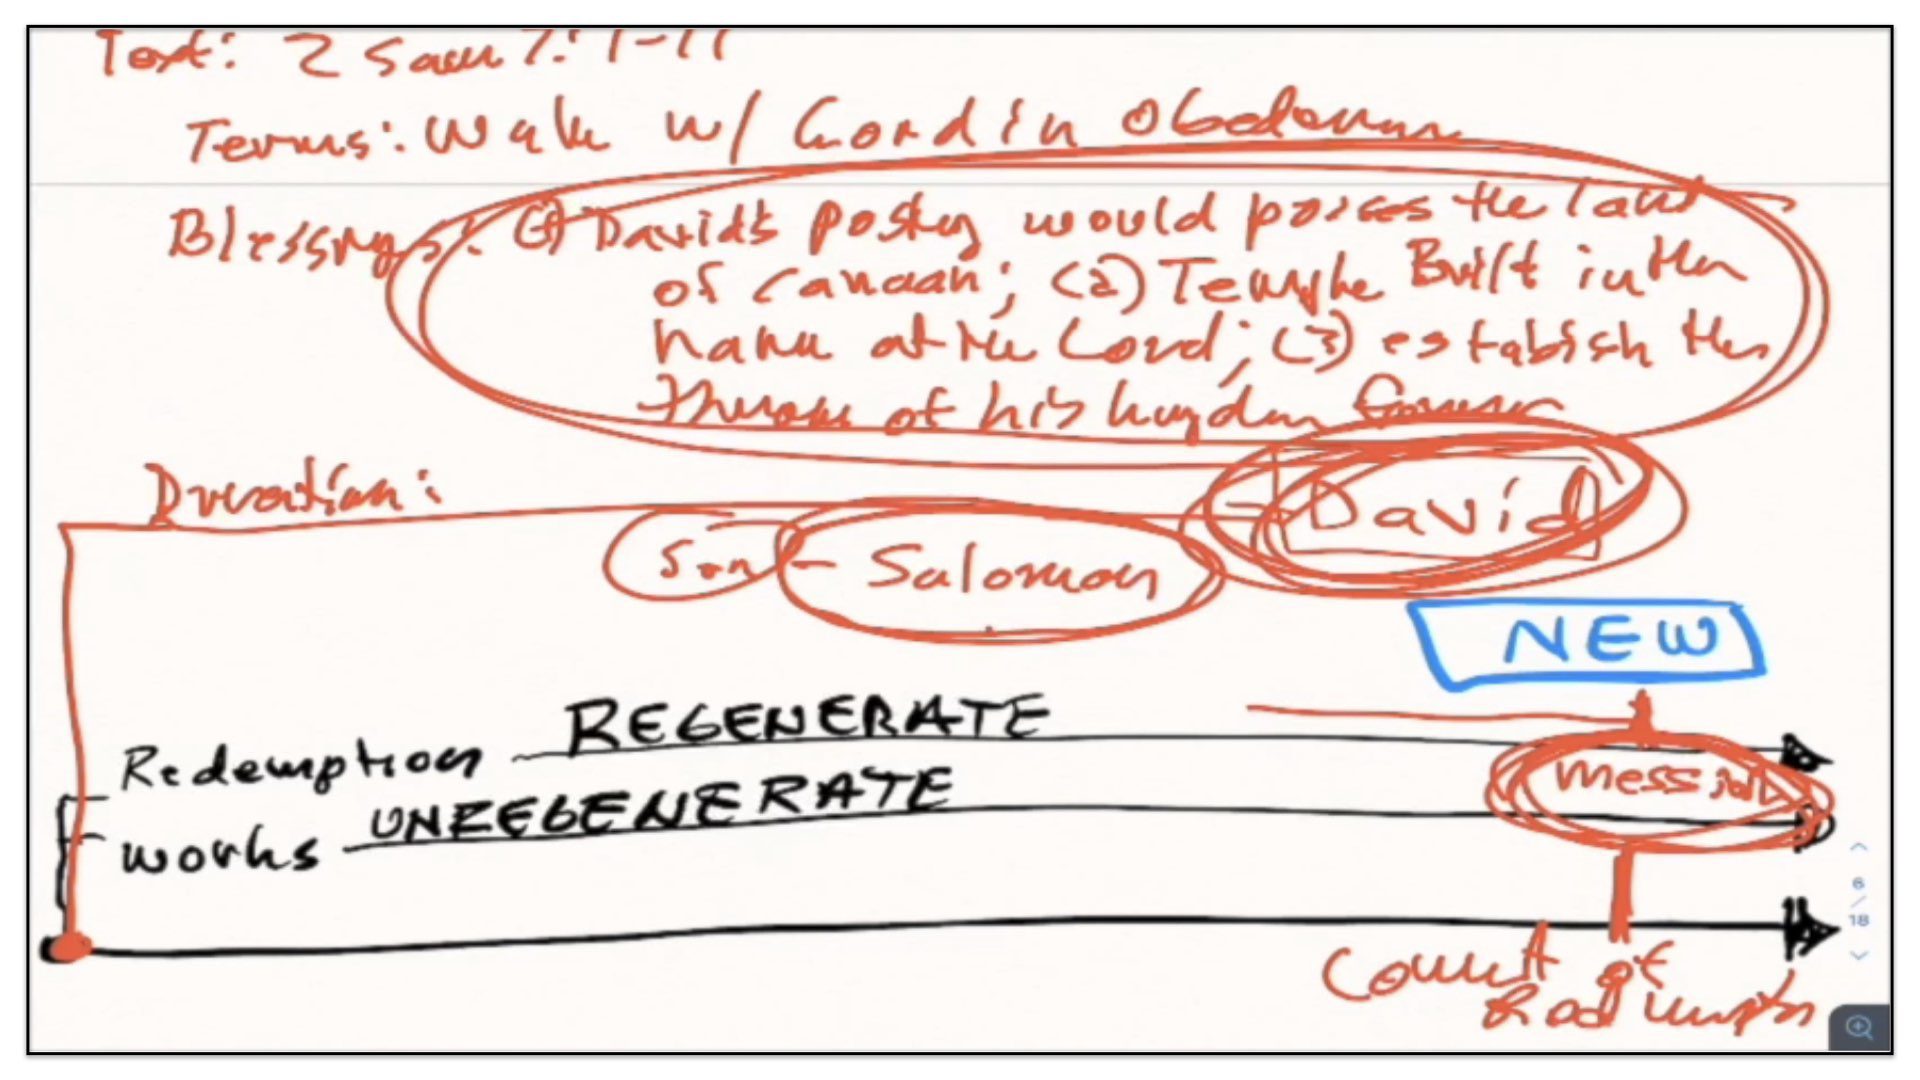 Text: 2 Sam 7:1-17
Terms: Walk w/ Lord in Obedence
Blessings: (1) David's postey would posses the land
of Canaan; (2) Temple Built in the
name of the Lord; (3) estabish the
throne of his kingdom forever
Duration:
David
Son - Salomon
NEW
REGENERATE
Redemption
Messiah
UNREGENERATE
works
6
/
18
of
Redemption